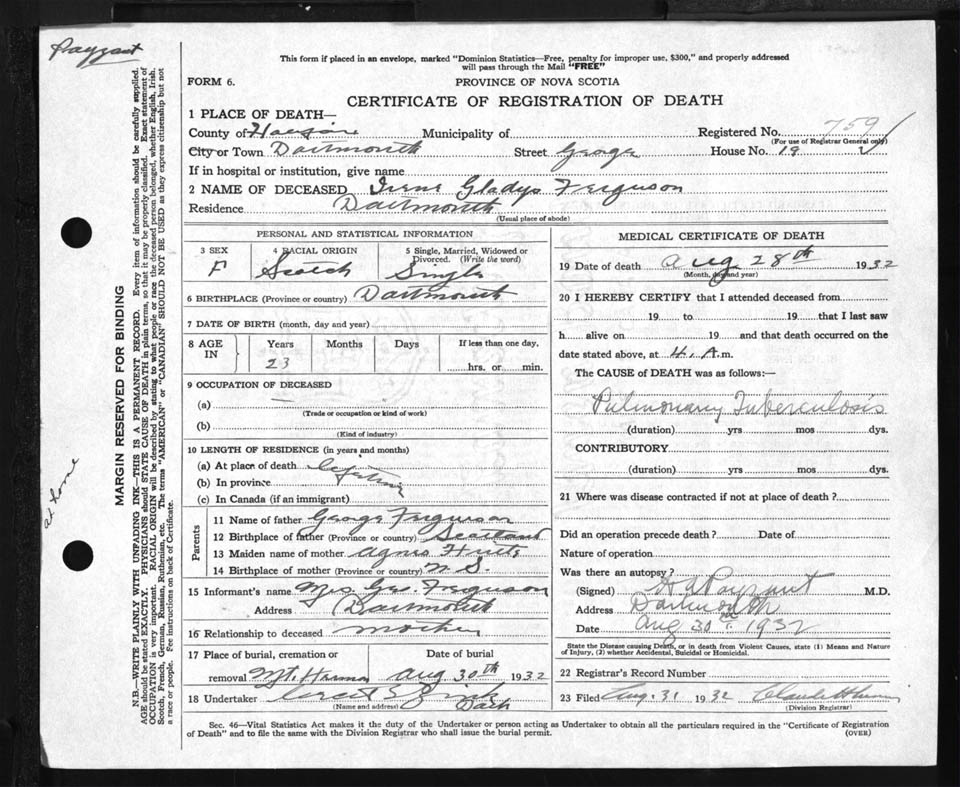 Payzant
This form if placed in an envelope, marked "Dominion Statistics—Free, penalty for improper use, $300," and properly addressed
will pass through the Mail "FREE"
FORM 6.
PROVINCE OF NOVA SCOTIA
CERTIFICATE OF REGISTRATION OF DEATH
1 PLACE OF DEATH—
County of Halifax Municipality of Registered No. 759
(For use of Registrar General only)
City or Town Dartmouth Street George House No. 19
If in hospital or institution, give name
2 NAME OF DECEASED Irene Gladys Ferguson
Residence Dartmouth
(Usual place of abode)
PERSONAL AND STATISTICAL INFORMATION
3 SEX 4 RACIAL ORIGIN 5 Single, Married, Widowed or
Divorced. (Write the word)
F Scotch Single
6 BIRTHPLACE (Province or country) Dartmouth
7 DATE OF BIRTH (month, day and year)
8 AGE IN Years Months Days If less than one day,
23 hrs. or min.
9 OCCUPATION OF DECEASED
(a) —
(Trade or occupation or kind of work)
(b)
(Kind of industry)
10 LENGTH OF RESIDENCE (in years and months)
(a) At place of death lifetime
(b) In province
(c) In Canada (if an immigrant)
Parents
11 Name of father George Ferguson
12 Birthplace of father (Province or country) Scotland
13 Maiden name of mother Agnes
14 Birthplace of mother (Province or country) N. S.
15 Informant's name Mrs Geo. Ferguson
Address Dartmouth
16 Relationship to deceased mother
17 Place of burial, cremation or Date of burial
removal Mt. Hermon Aug 30th 1932
18 Undertaker
(Name and address) Dart
MEDICAL CERTIFICATE OF DEATH
19 Date of death Aug 28th 1932
(Month, day and year)
20 I HEREBY CERTIFY that I attended deceased from
19 to 19 that I last saw
h alive on 19 and that death occurred on
date stated above, at 4. A.m.
The CAUSE of DEATH was as follows:—
Pulmonary Tuberculosis
(duration) yrs mos dys.
CONTRIBUTORY
(duration) yrs mos dys.
21 Where was disease contracted if not at place of death ?
Did an operation precede death ? Date of
Nature of operation
Was there an autopsy ?
(Signed) H A Payzant M.D.
Address Dartmouth
Date Aug 30th 1932
State the Disease causing Death, or in death from Violent Causes, state (1) Means and Nature
of Injury, (2) whether Accidental, Suicidal or Homicidal.
22 Registrar's Record Number
23 Filed Aug. 31 1932
(Division Registrar)
Sec. 46—Vital Statistics Act makes it the duty of the Undertaker or person acting as Undertaker to obtain all the particulars required in the "Certificate of Registration
of Death" and to file the same with the Division Registrar who shall issue the burial permit. (OVER)
MARGIN RESERVED FOR BINDING
N.B.—WRITE PLAINLY WITH UNFADING INK—THIS IS A PERMANENT RECORD. Every item of information should be carefully supplied.
AGE should be stated EXACTLY. PHYSICIANS should STATE CAUSE OF DEATH in plain terms, so that it may be properly classified. Exact statement of
OCCUPATION is very important. RACIAL ORIGIN will be described by stating to what people or race the deceased person belonged, whether English, Irish,
Scotch, French, German, Russian, Ruthenian, etc. The terms "AMERICAN" or "CANADIAN" SHOULD NOT BE USED as they express citizenship but not
a race or people. Fee instructions on back of Certificate.
at home